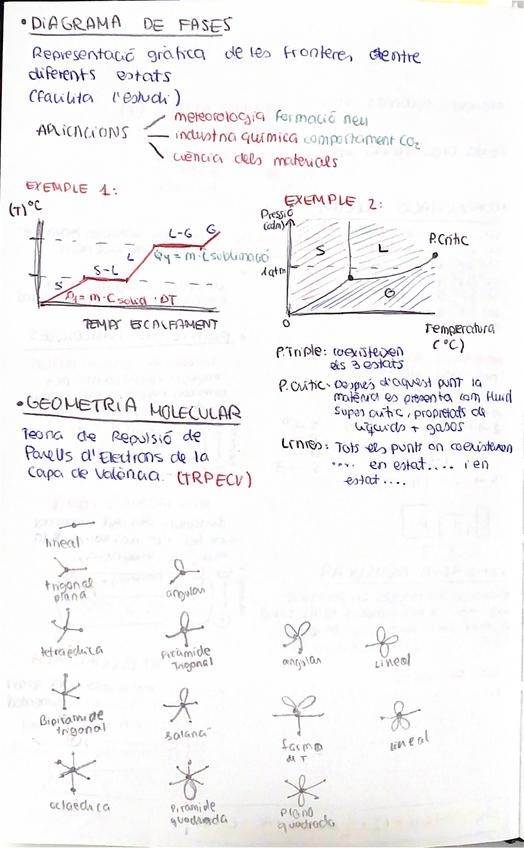 • DIAGRAMA DE FASES
Representació gràfica de les fronteres dentre
diferents estats
(facilita l'estudi)
APLICACIONS
meteorologia formació neu
industria química comportament CO2
ciència dels materials
EXEMPLE 1:
(T) °C
S
S-L
L
L-G
G
Q4 = m·L sublimació
Q1 = m·C solid · DT
TEMPS ESCALFAMENT
EXEMPLE 2:
Pressió
(atm)
1 atm
S
L
G
P.Crític
0
Temperatura
(°C)
P.Triple: coexisteixen
els 3 estats
P.Crític: Després d'aquest punt la
matèria es presenta com fluid
supercrític, propietats de
líquids + gasos
Línies: Tots els punts on coexisteixen
.... en estat .... i en
estat ....
• GEOMETRIA MOLECULAR
Teoria de Repulsió de
Parells d'Electrons de la
Capa de València. (TRPECV)
lineal
trigonal
plana
angular
tetraèdrica
Piràmide
trigonal
angular
Lineal
Bipiràmide
trigonal
Balança
forma
de T
lineal
octaèdrica
Piràmide
quadrada
Plano
quadrada